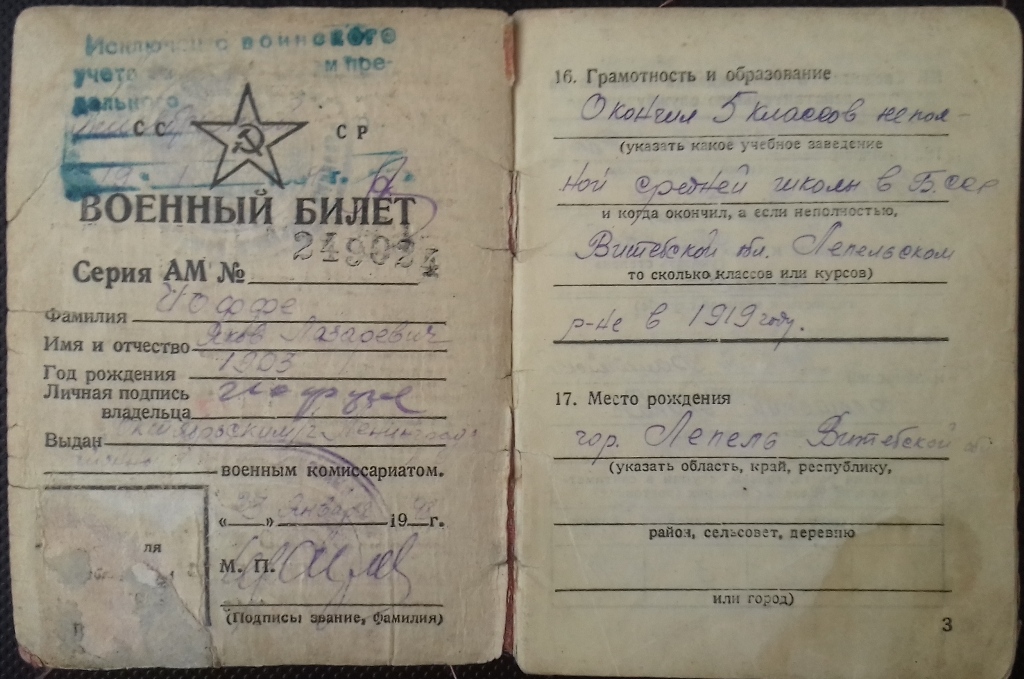 Исключен с воинского
учета
дельного
СС СР
19 г.
ВОЕННЫЙ БИЛЕТ
Серия АМ № 249024
Фамилия Иоффе
Имя и отчество Яков Лазаревич
Год рождения 1903
Личная подпись
владельца
Выдан Октябрьским г. Ленинграда
военным комиссариатом.
« » Января 19 г.
М. П.
(Подпись звание, фамилия)
16. Грамотность и образование
Окончил 5 классов непол-
(указать какое учебное заведение
ной средней школы в БССР
и когда окончил, а если неполностью,
Витебской обл. Лепельском
то сколько классов или курсов)
р-не в 1919 году.
17. Место рождения
гор. Лепель Витебской об
(указать область, край, республику,
район, сельсовет, деревню
или город)
3